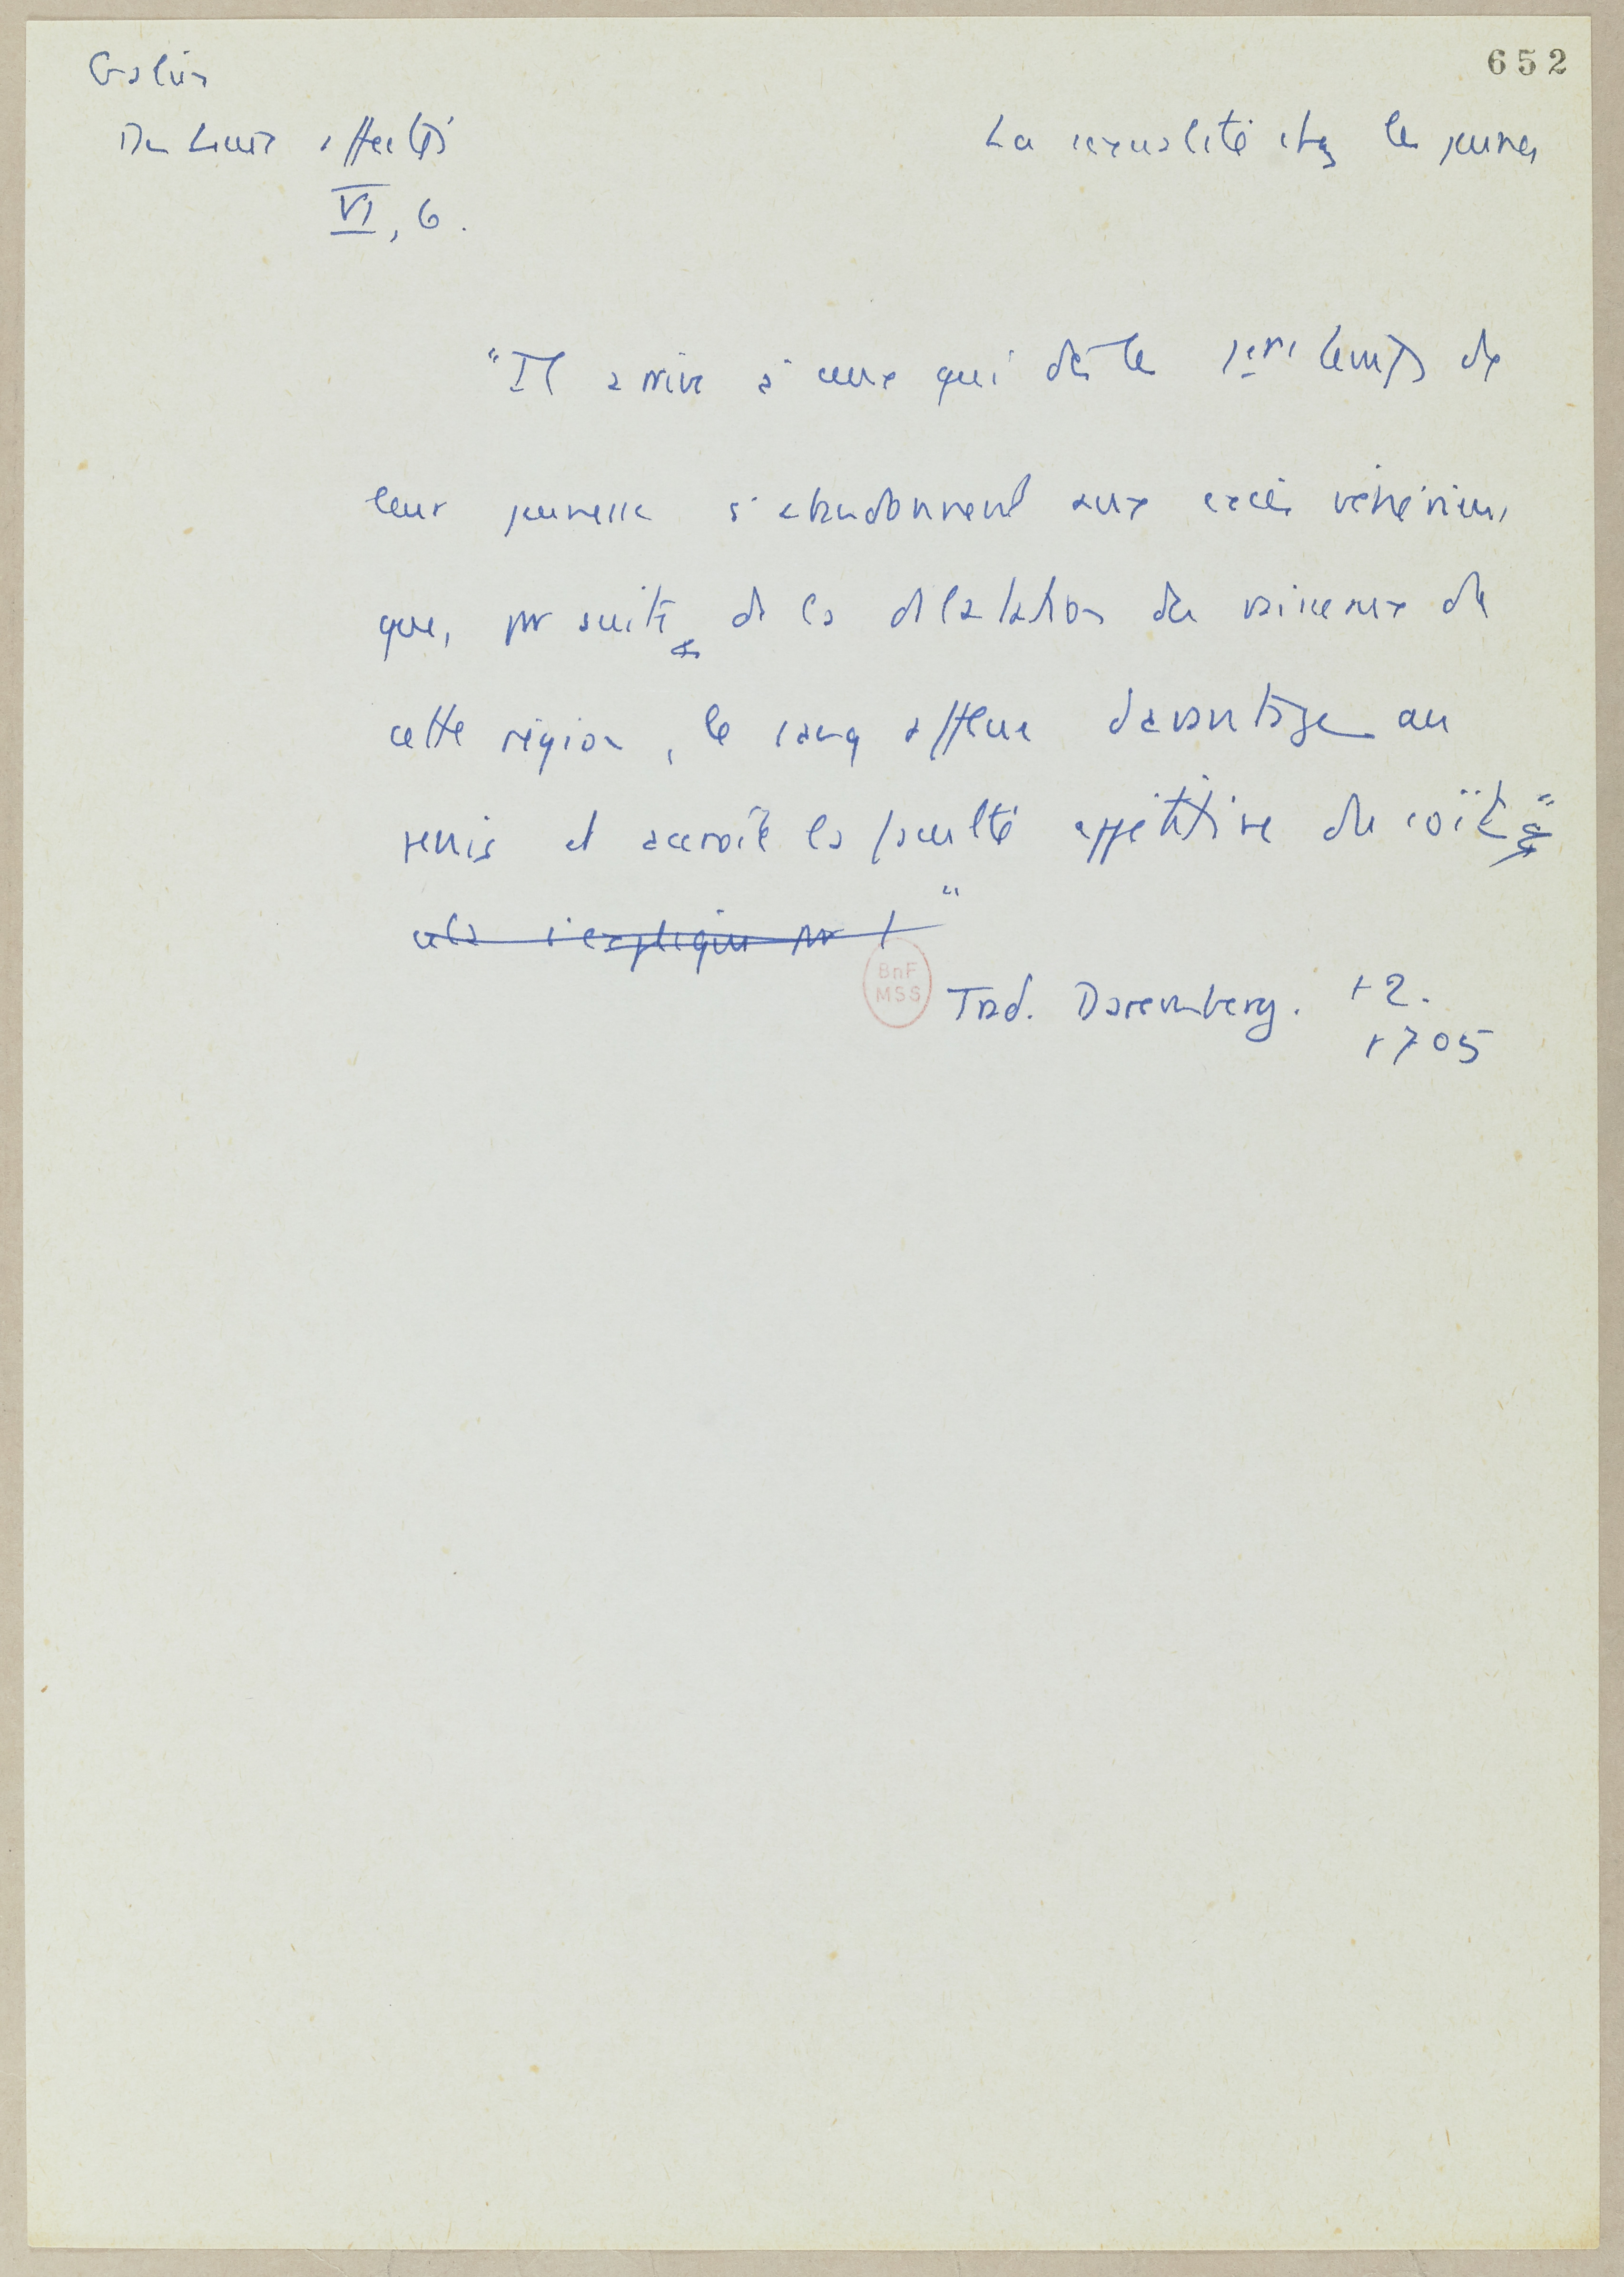 652
Galien
Des Lieux affectés
VI, 6.
La sexualité chez les jeunes
"Il arrive à ceux qui dès le 1er temps de
leur jeunesse s'abandonnent aux excès vénériens,
que, par suite de la dilatation des vaisseaux de
cette région, le sang afflue davantage au
penis et accroît la faculté appétitive du coït"
cela s'explique par l "
BnF
MSS
Trad. Daremberg. t 2.
p 705